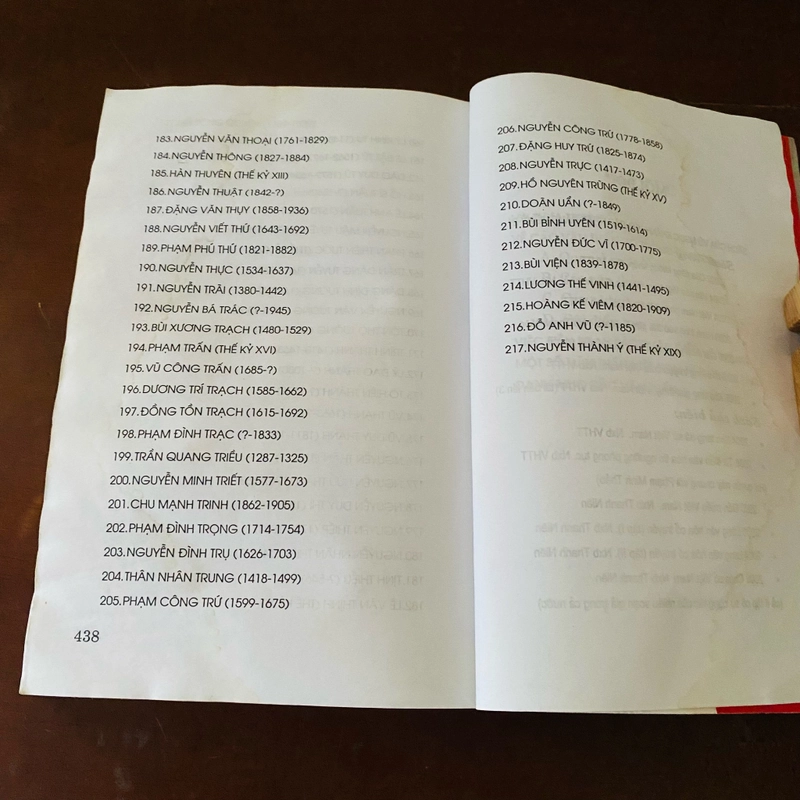 183.NGUYỄN VĂN THOẠI (1761-1829)
184.NGUYỄN THÔNG (1827-1884)
185.HÀN THUYÊN (THẾ KỶ XIII)
186.NGUYỄN THUẬT (1842-?)
187.ĐẶNG VĂN THỤY (1858-1936)
188.NGUYỄN VIẾT THỨ (1643-1692)
189.PHẠM PHÚ THỨ (1821-1882)
190.NGUYỄN THỰC (1534-1637)
191.NGUYỄN TRÃI (1380-1442)
192.NGUYỄN BÁ TRÁC (?-1945)
193.BÙI XƯƠNG TRẠCH (1480-1529)
194.PHẠM TRẤN (THẾ KỶ XVI)
195.VŨ CÔNG TRẤN (1685-?)
196.DƯƠNG TRÍ TRẠCH (1585-1662)
197.ĐỒNG TỒN TRẠCH (1615-1692)
198.PHẠM ĐÌNH TRẠC (?-1833)
199.TRẦN QUANG TRIỀU (1287-1325)
200.NGUYỄN MINH TRIẾT (1577-1673)
201.CHU MẠNH TRINH (1862-1905)
202.PHẠM ĐÌNH TRỌNG (1714-1754)
203.NGUYỄN ĐÌNH TRỤ (1626-1703)
204.THÂN NHÂN TRUNG (1418-1499)
205.PHẠM CÔNG TRỨ (1599-1675)
438
206.NGUYỄN CÔNG TRỨ (1778-1858)
207.ĐẶNG HUY TRỨ (1825-1874)
208.NGUYỄN TRỰC (1417-1473)
209.HỒ NGUYÊN TRỪNG (THẾ KỶ XV)
210.DOÃN UẨN (?-1849)
211.BÙI BỈNH UYÊN (1519-1614)
212.NGUYỄN ĐỨC VĨ (1700-1775)
213.BÙI VIỆN (1839-1878)
214.LƯƠNG THẾ VINH (1441-1495)
215.HOÀNG KẾ VIÊM (1820-1909)
216.ĐỖ ANH VŨ (?-1185)
217.NGUYỄN THÀNH Ý (THẾ KỶ XIX)